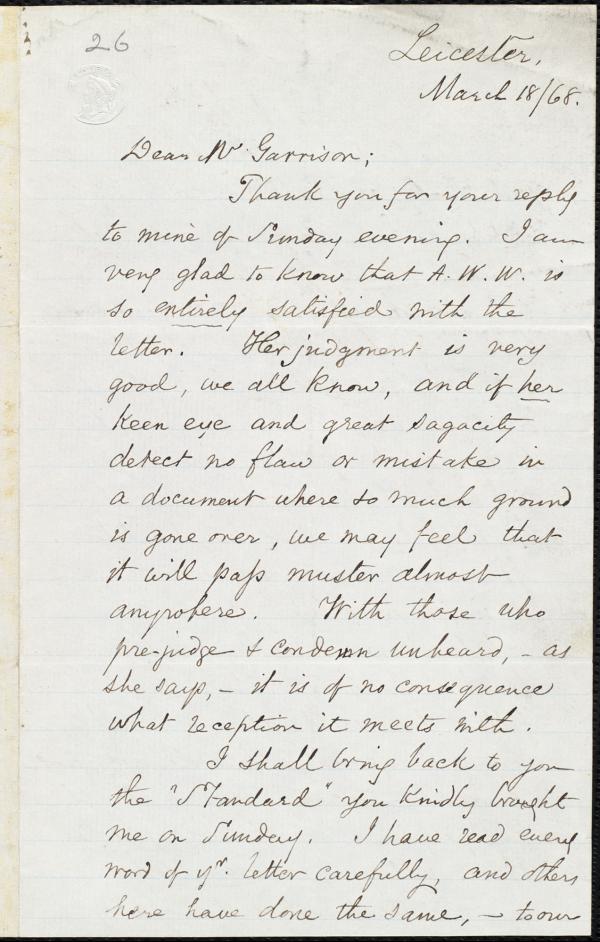 26
Leicester,
March 18/68.
Dear Mr. Garrison;
Thank you for your reply
to mine of Sunday evening. I am
very glad to know that A. W. W. is
so entirely satisfied with the
letter. Her judgment is very
good, we all know, and if her
keen eye and great sagacity
detect no flaw or mistake in
a document where so much ground
is gone over, we may feel that
it will paſs muster almost
anywhere. With those who
pre-judge & condemn unheard, - as
she says, - it is of no consequence
what reception it meets with.
I shall bring back to you
the "Standard" you kindly brought
me on Sunday. I have read every
word of yr. letter carefully, and others
here have done the same, - to our